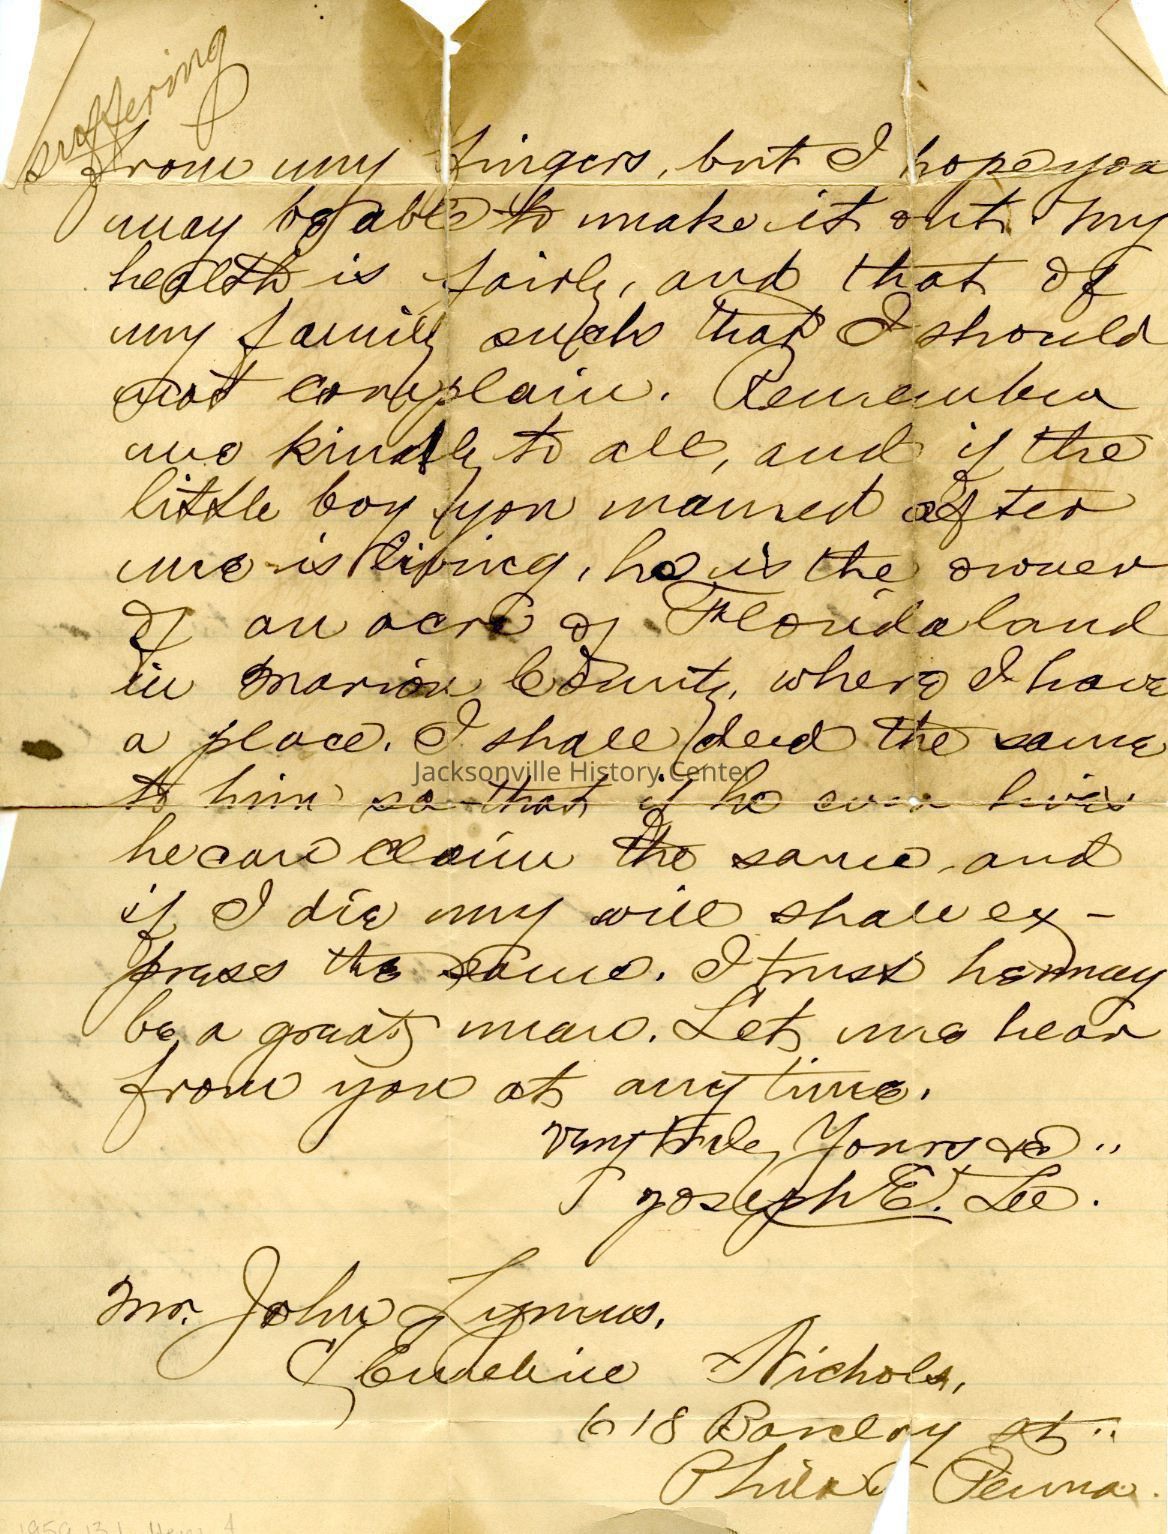 suffering
from my fingers, but I hope you
may be able to make it out. My
health is fairly, and that of
my family such that I should
not complain. Remember
me kindly to all, and if the
little boy you named after
me is living, he is the owner
of an acre of Florida land
in Marion County, where I have
a place. I shall deed the same
Jacksonville History Center
to him so that if he ever lives
he can claim the same, and
if I die my will shall ex-
press the same. I trust he may
be a great man. Let me hear
from you at any time.
Very truly Yours &c ..
Joseph E. Lee.
Mr. John Lymus,
Emeline Nichols,
618 Barclay st ..
Phila Penna.